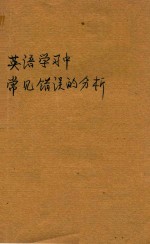 英语学习中
常见错误的分析